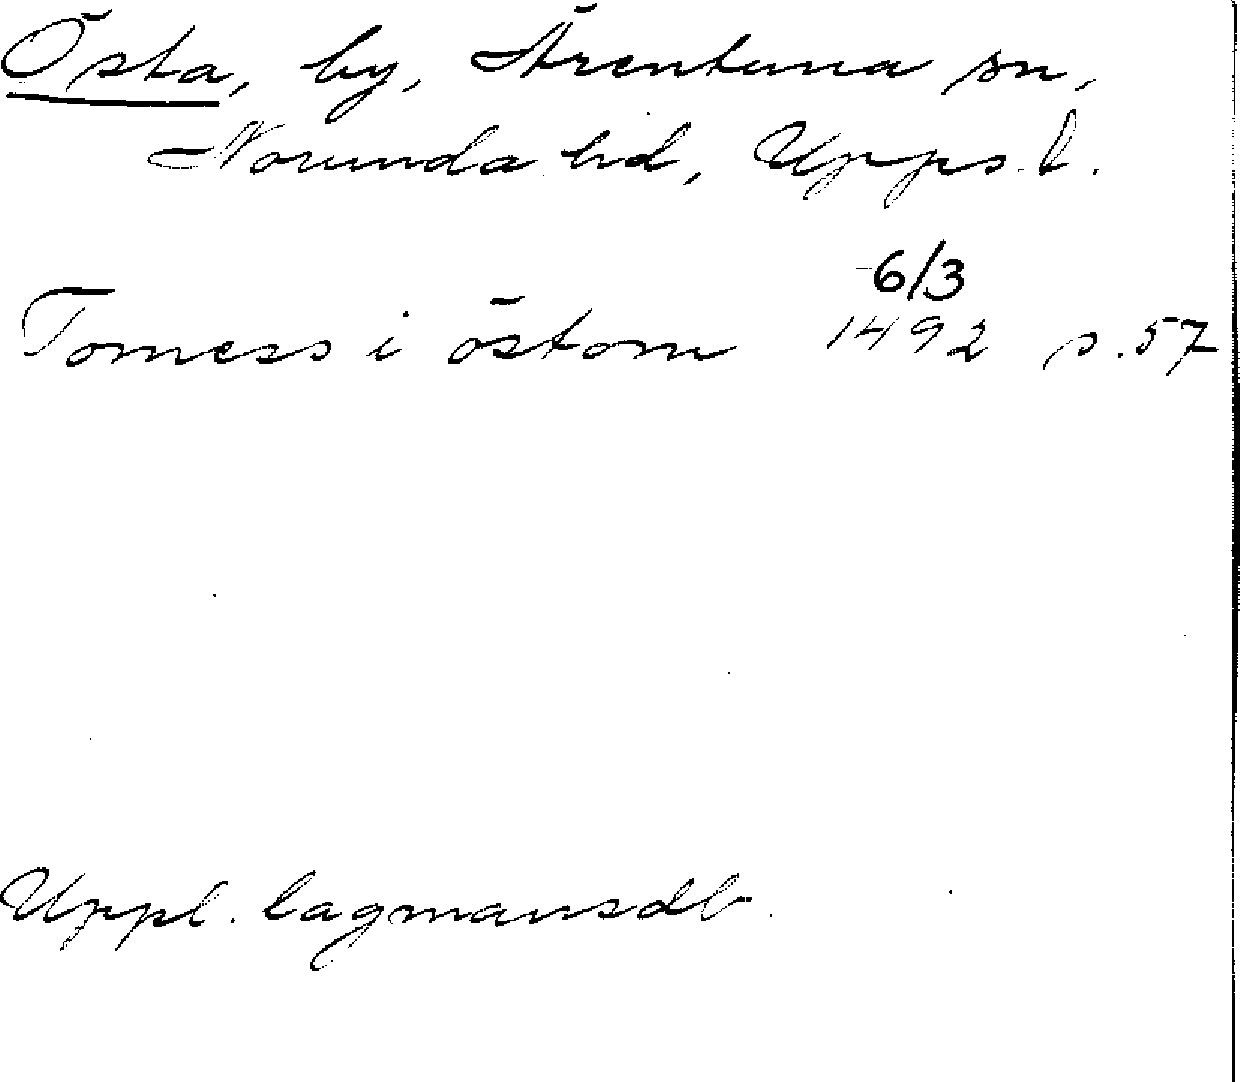 Östa, by, Ärentuna sn,
Norunda hd, Upps. l.
6/3
Tomess i östom 1492 s. 57
Uppl. lagmansdb.